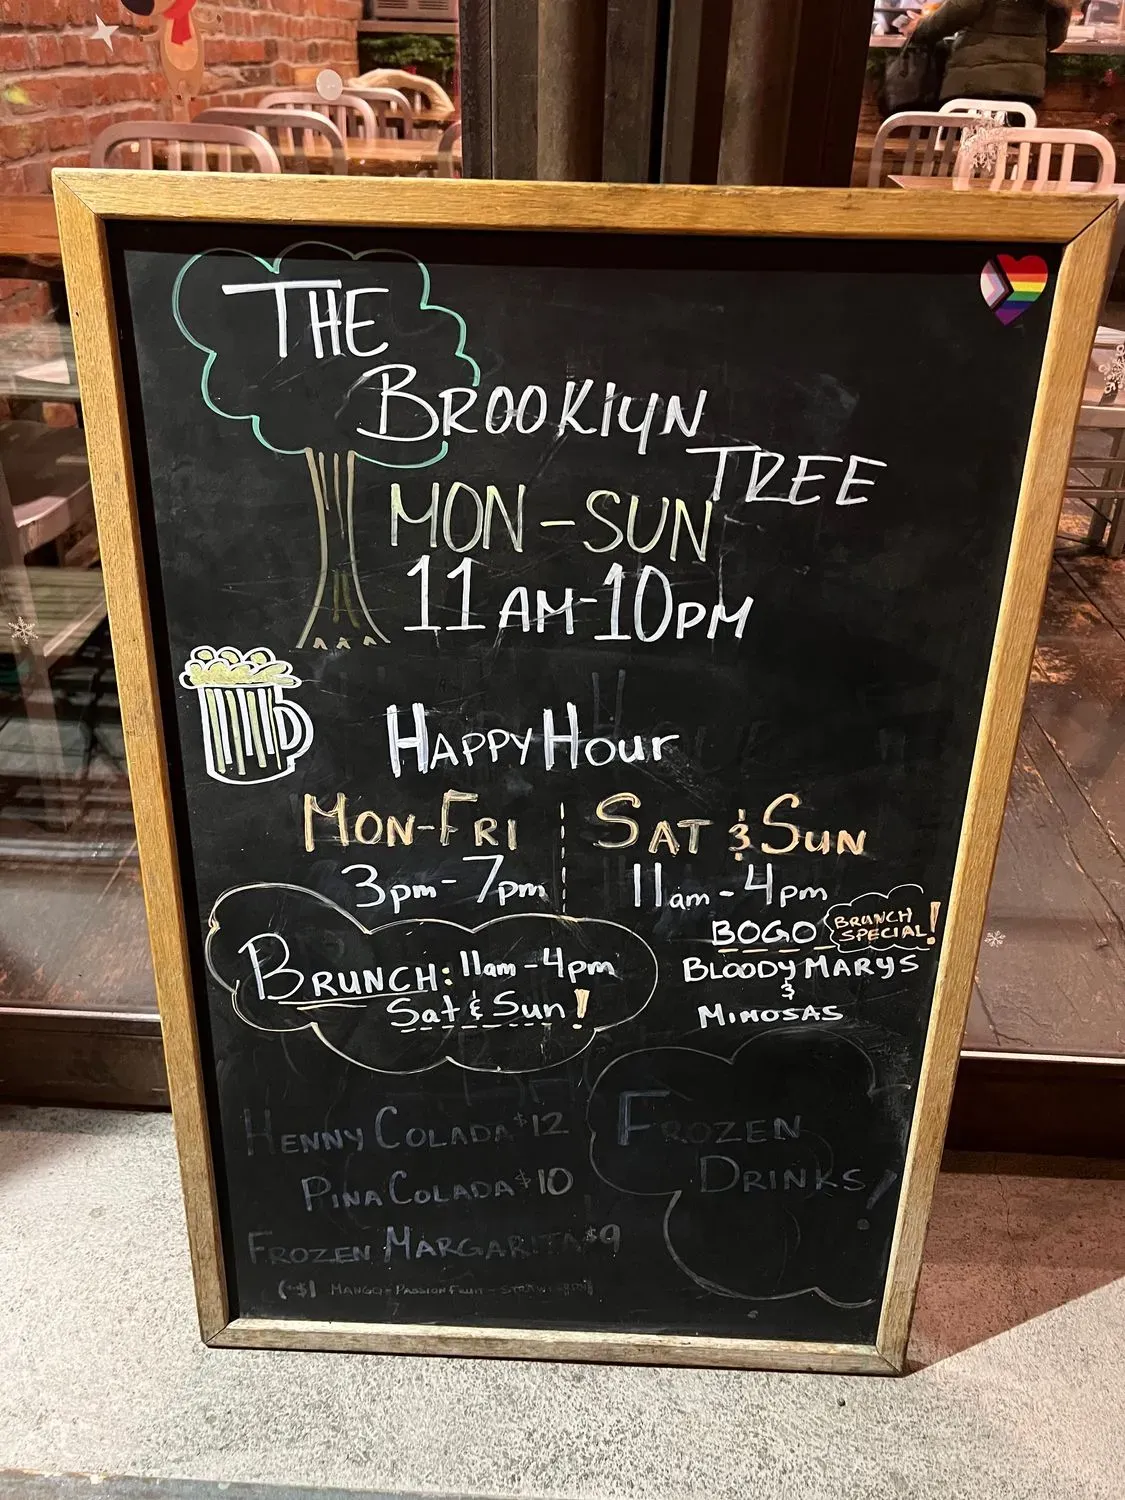 THE
BROOKlYN
TREE
MON-SUN
11AM-10PM
HAPPY HOUr
MON-FRI
3pm-7pm
SAT & SUN
11am-4pm
BOGO BRUNCH SPECIAL!
BLOODY MARYS
&
MIMOSAS
BRUNCH: 11am-4pm
Sat & Sun!
HENNY COLADA $12
PINA COLADA $10
FROZEN MARGARITA $9
(+$1 MANGO-PASSION FRUIT-STRAWBERRY
FROZEN
DRINKS!